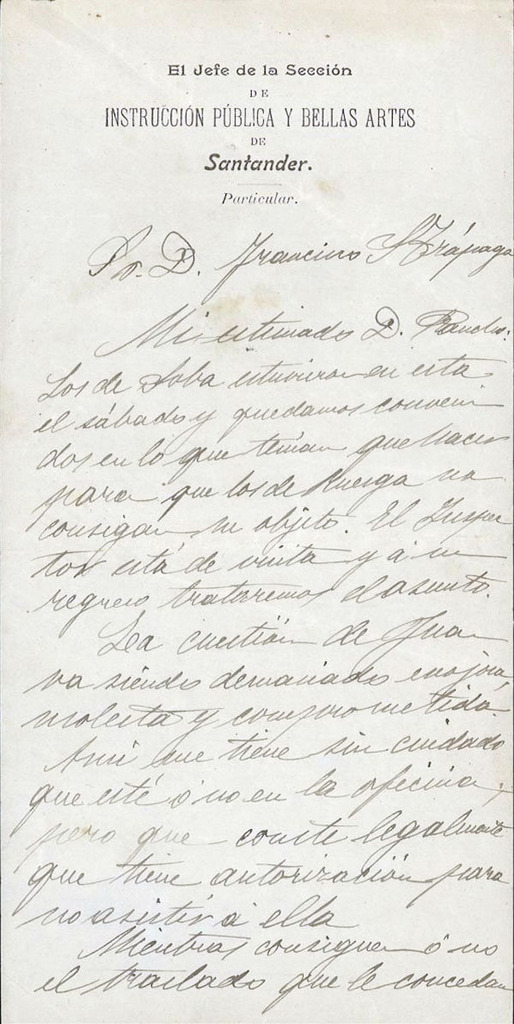 El Jefe de la Sección
DE
INSTRUCCIÓN PÚBLICA Y BELLAS ARTES
DE
Santander.
Particular.
Sr. D. Francisco S. Trápaga
Mi estimado D. Pancho:
Los de Soba estuvieron en esta
el sábado y quedamos conveni
dos en lo que tenían que hacer
para que los de Ruesga no
consigan su objeto. El Inspec
tor está de visita y á su
regreso trataremos el asunto.
La cuestión de Juan
va siendo demasiado enojosa,
molesta y comprometida.
A mi me tiene sin cuidado
que esté ó no en la oficina;
pero que conste legalmente
que tiene autorización para
no asistir á ella
Mientras consigue ó no
el traslado que le concedan